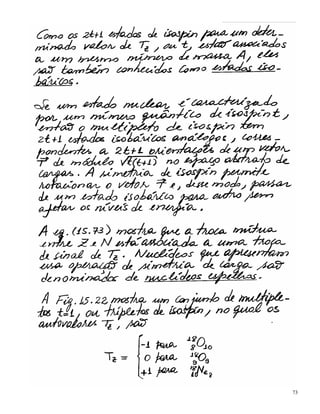 Como os 2t+1 estados de isospin para um deter-
minado valor de T_z, ou t, estão associados
a um mesmo número de massa A, eles
são também conhecidos como estados iso-
báricos.
Se um estado nuclear é caracterizado
por um número quântico de isospin t,
então o multipleto de isospin tem
2t+1 estados isobáricos análogos, corres-
pondentes a 2t+1 orientações de um vetor
T de módulo √t(t+1) no espaço abstrato de
cargas. A simetria de isospin permite
rotacionar o vetor T e, desse modo, passar
de um estado isobárico para outro sem
afetar os níveis de energia.
A eq. (15.73) mostra que a troca mútua
entre Z e N está associada a uma troca
de sinal de T_z. Nuclídeos que apresentam
essa operação de simetria de carga são
denominados de nuclídeos espelhos.
A Fig. 15.22 mostra um conjunto de multiple-
tos t=1, ou tripletos de isospin, no qual os
autovalores T_z, são
T_z = { -1 para ¹⁸₈O₁₀
0 para ¹⁸₉O₉
+1 para ¹⁸₁₀Ne₈
73